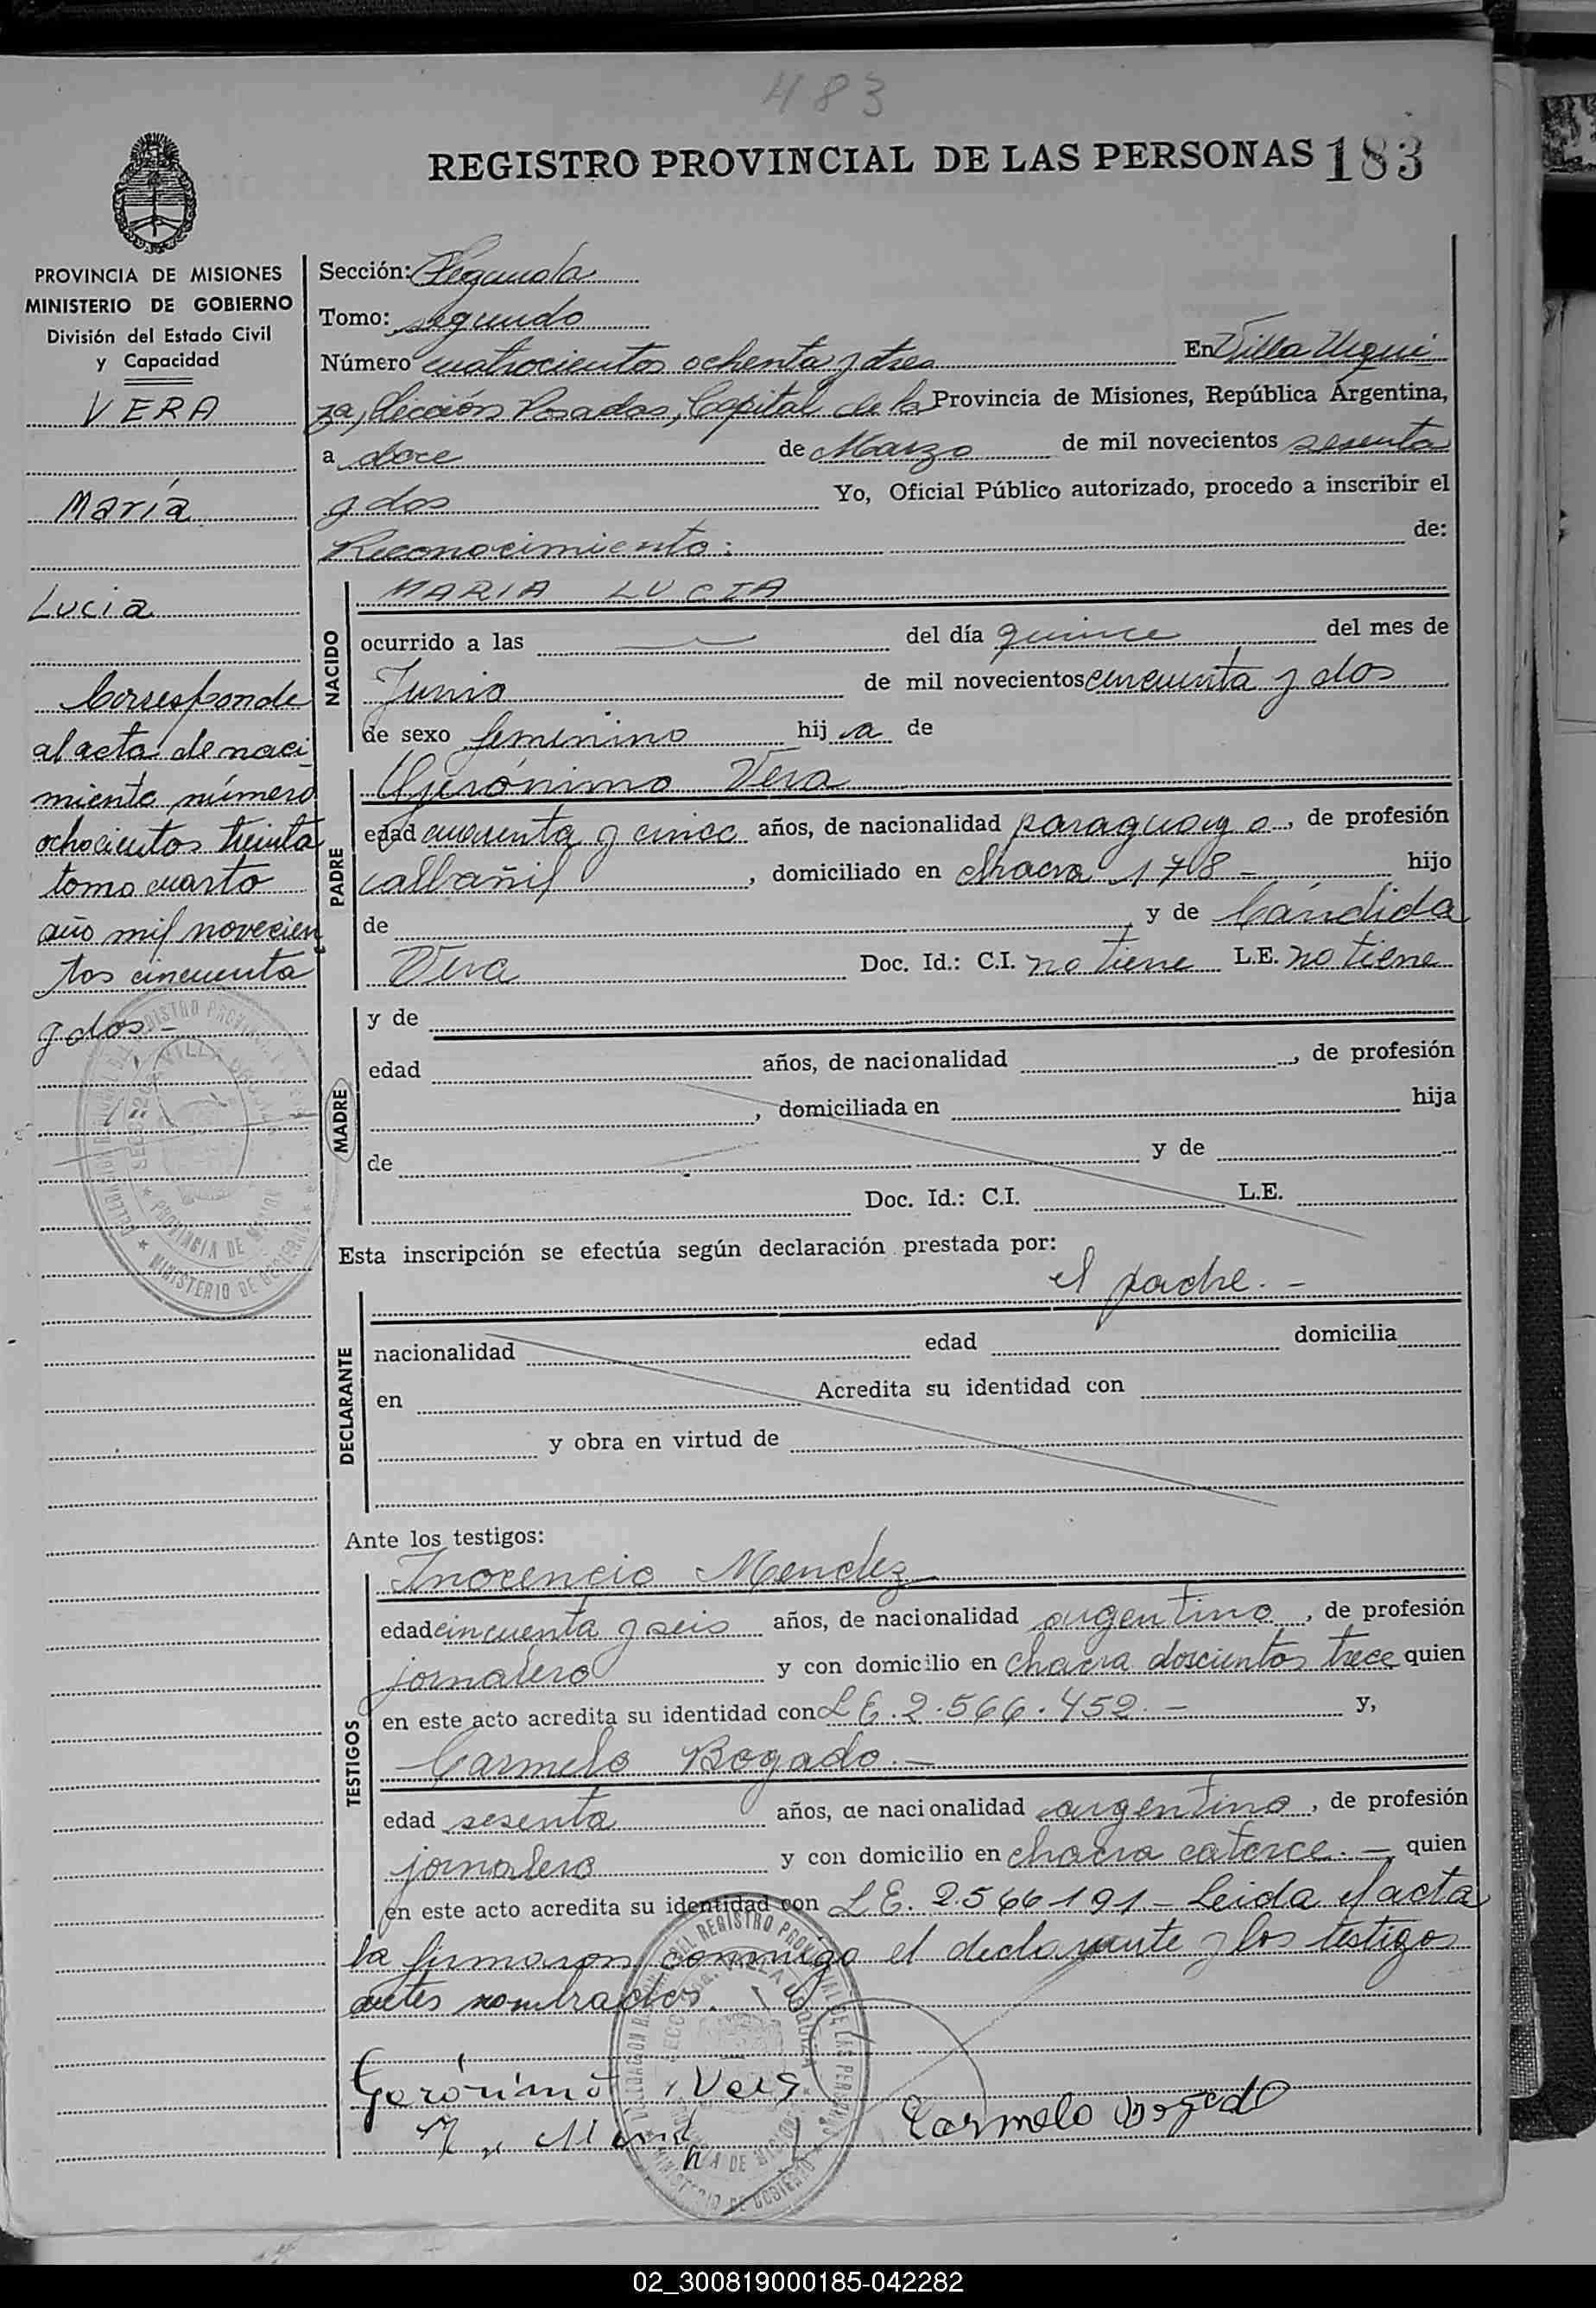 483
REGISTRO PROVINCIAL DE LAS PERSONAS 183
PROVINCIA DE MISIONES
MINISTERIO DE GOBIERNO
División del Estado Civil
y Capacidad
VERA
María
Lucia
Corresponde
al acta de naci
miento número
ochocientos treinta
tomo cuarto
año mil novecien
tos cincuenta
y dos -
Sección: Segunda
Tomo: segundo
Número cuatrocientos ochenta y tres En Villa Urqui
za, Sección Posadas, Capital de la Provincia de Misiones, República Argentina,
a doce de Marzo de mil novecientos sesenta
y dos Yo, Oficial Público autorizado, procedo a inscribir el
Reconocimiento: de:
NACIDO
MARIA LUCIA
ocurrido a las — del día quince del mes de
Junio de mil novecientos cincuenta y dos
de sexo femenino hij a de
PADRE
Gerónimo Vera
edad cuarenta y cinco años, de nacionalidad paraguayo, de profesión
albañil, domiciliado en chacra 178 - hijo
de y de Cándida
Vera Doc. Id.: C.I. no tiene L.E. no tiene
MADRE
y de
edad años, de nacionalidad , de profesión
, domiciliada en hija
de y de
Doc. Id.: C.I. L.E.
Esta inscripción se efectúa según declaración prestada por:
el padre. -
DECLARANTE
nacionalidad edad domicilia
en Acredita su identidad con
y obra en virtud de
Ante los testigos:
TESTIGOS
Inocencio Mendez
edad cincuenta y seis años, de nacionalidad argentino, de profesión
jornalero y con domicilio en chacra doscientos trece quien
en este acto acredita su identidad con L E. 2.566.452. - y,
Carmelo Bogado. -
edad sesenta años, de nacionalidad argentino, de profesión
jornalero y con domicilio en chacra catorce. - quien
en este acto acredita su identidad con L E. 2.566191 - Leida el acta
la firmaron conmigo el declarante y los testigos
antes nombrados.
Gerónimo Vera
Carmelo Bogado
02_300819000185-042282